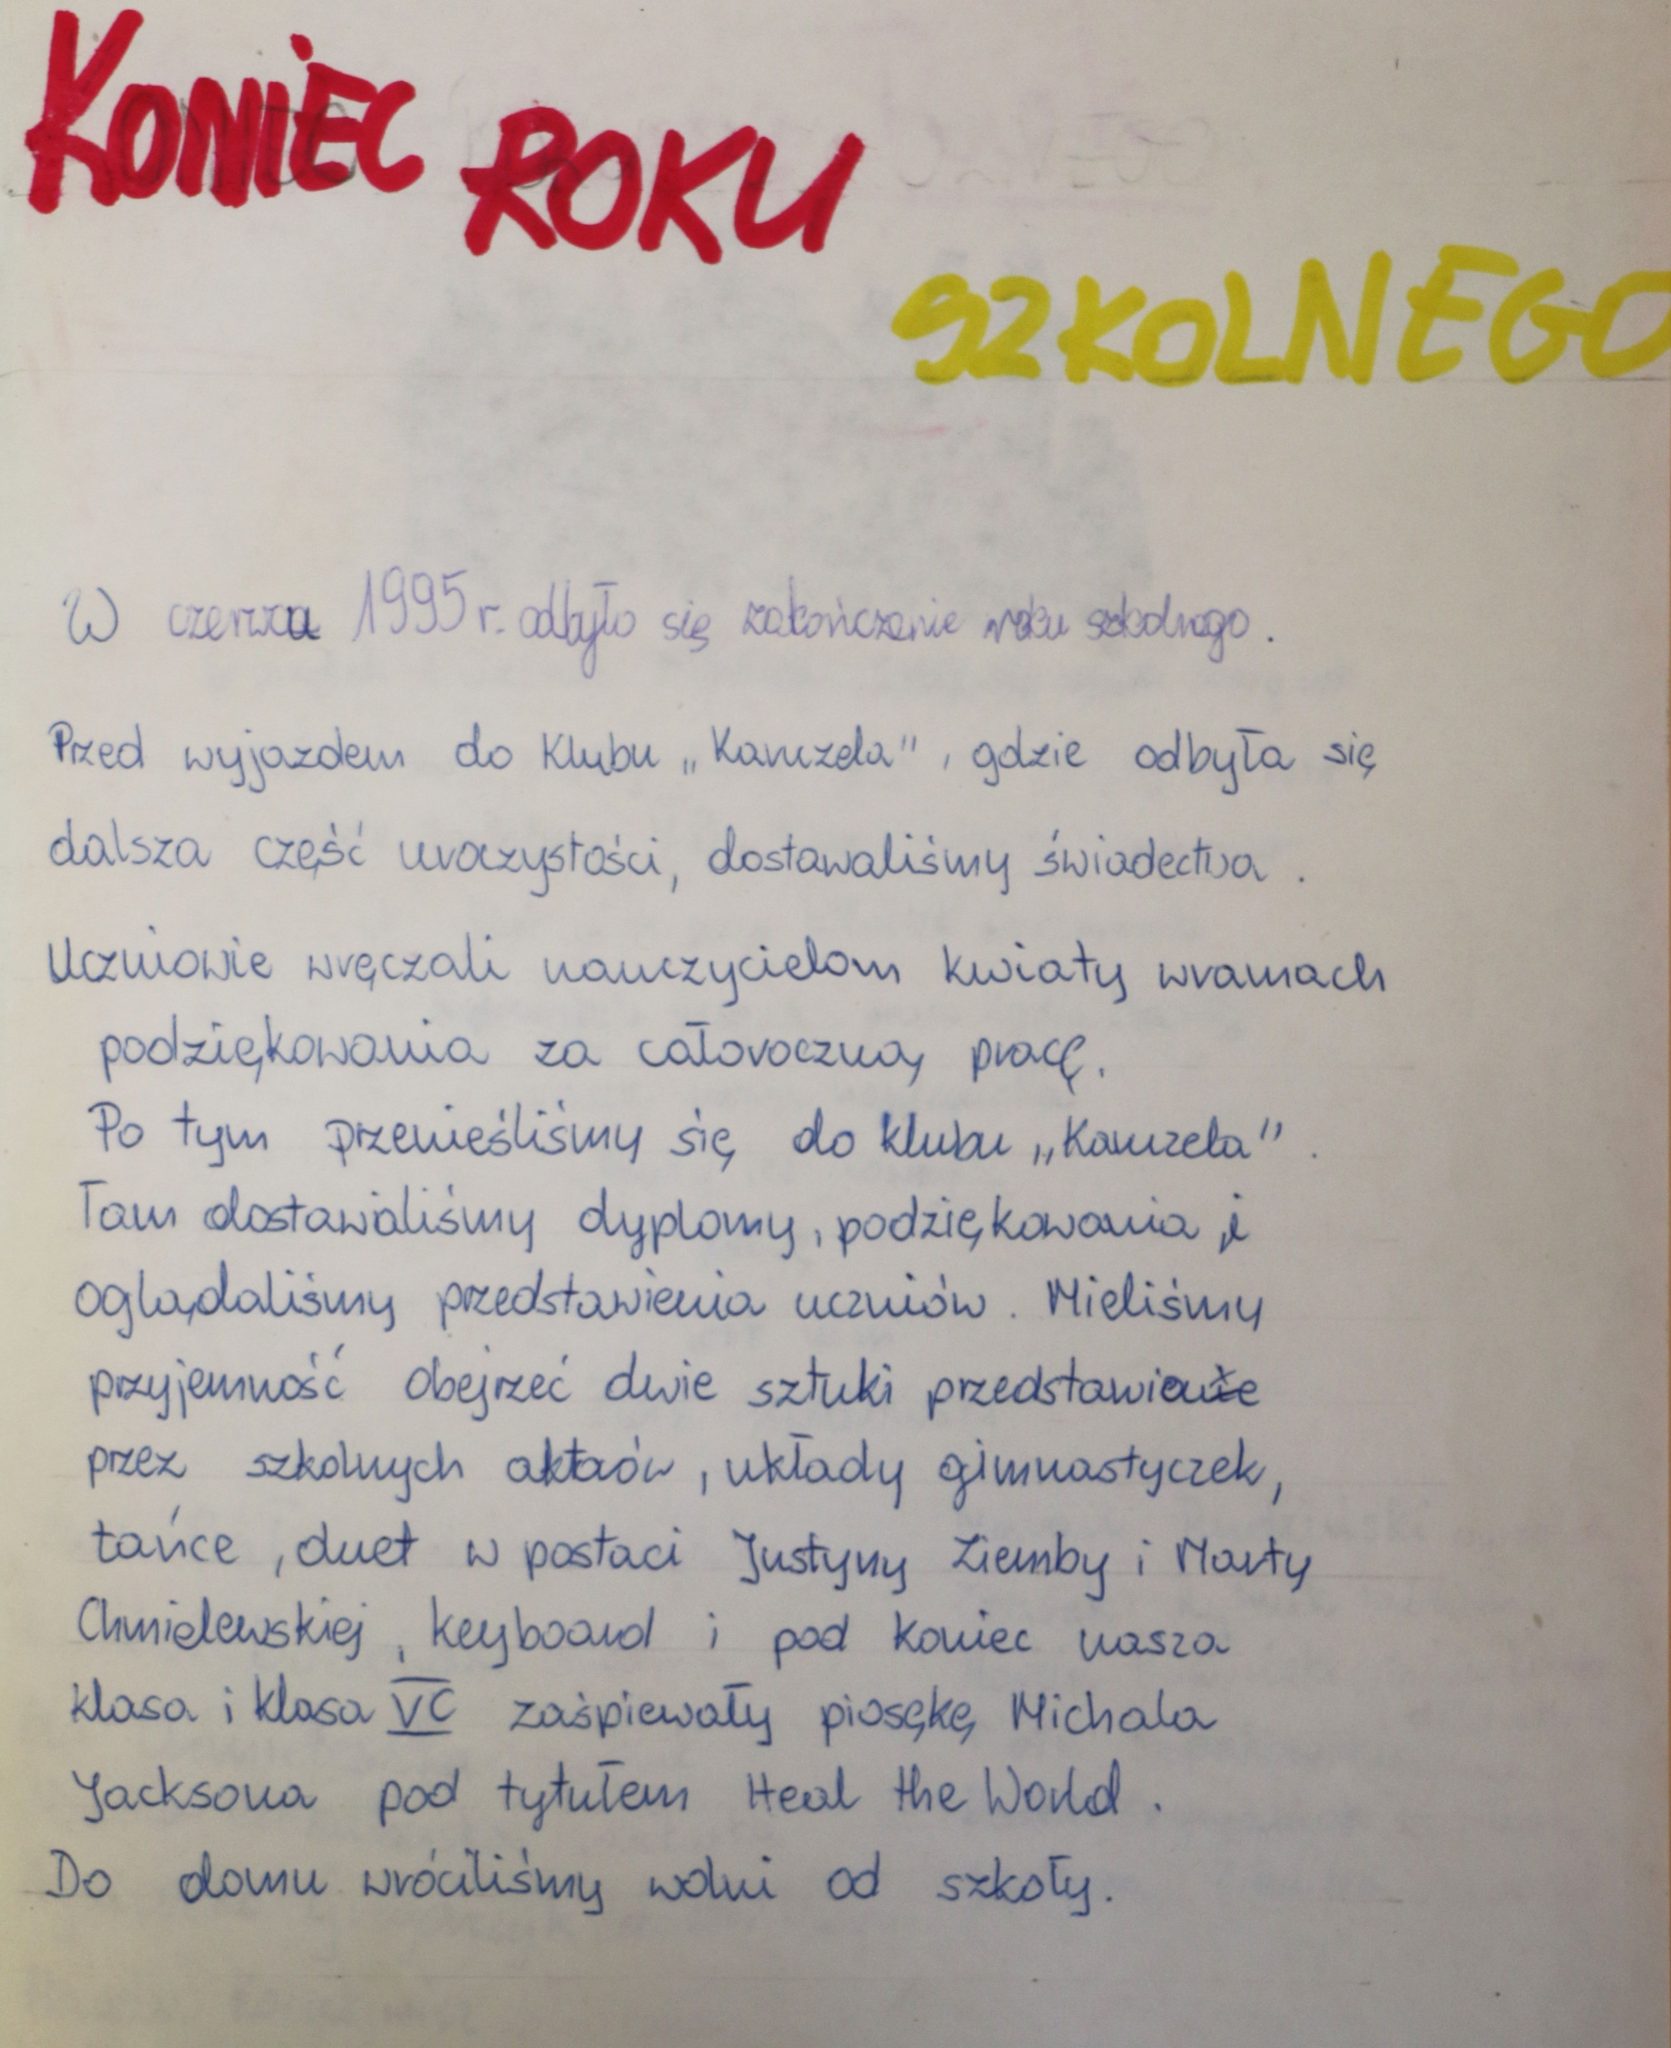 KONIEC ROKU
SZKOLNEGO
W czerwcu 1995 r. odbyło się zakończenie roku szkolnego.
Przed wyjazdem do Klubu „Kanczela", gdzie odbyła się
dalsza część uroczystości, dostawaliśmy świadectwa.
Uczniowie wręczali nauczycielom kwiaty wramach
podziękowania za całoroczną pracę.
Po tym przenieśliśmy się do klubu „Kanczela".
Tam dostawaliśmy dyplomy, podziękowania i
oglądaliśmy przedstawienia uczniów. Mieliśmy
przyjemność obejrzeć dwie sztuki przedstawione
przez szkolnych aktorów, układy gimnastyczek,
tańce, duet w postaci Justyny Ziemby i Marty
Chmielewskiej, keyboard i pod koniec nasza
klasa i klasa VC zaśpiewały piosękę Michala
Jacksona pod tytułem Heal the World.
Do domu wróciliśmy wolni od szkoły.